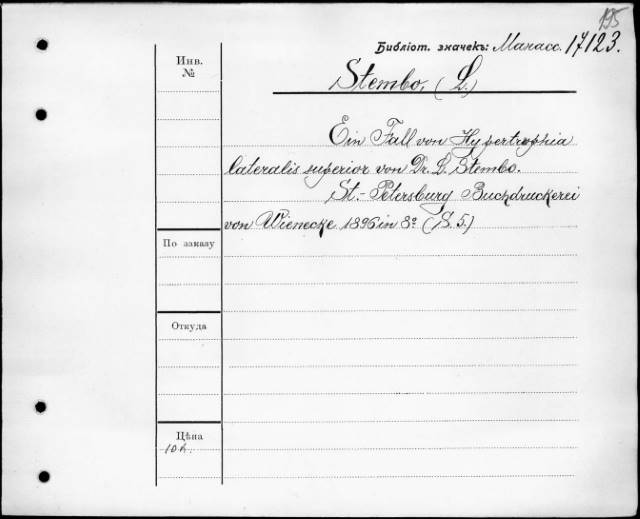 195
Библіот. значекъ: Манасс. 17123.
Инв.
№
Stembo, (L.)
Ein Fall von Hypertrophia
lateralis superior von Dr. L. Stembo.
St.-Petersburg Buchdruckerei
von Wienecke 1896 in 8º (S. 5.)
По заказу
Откуда
Цѣна
10 к.